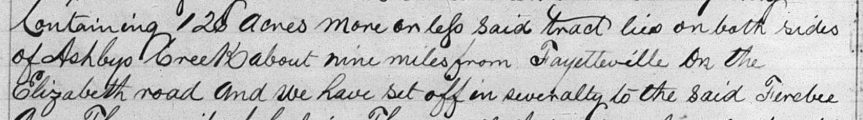 Containing 128 Acres more or less said tract lies on both sides
of Ashbys Creek about nine miles from Fayetteville on the
Elizabeth road And we have set off in severalty to the said Ferebee